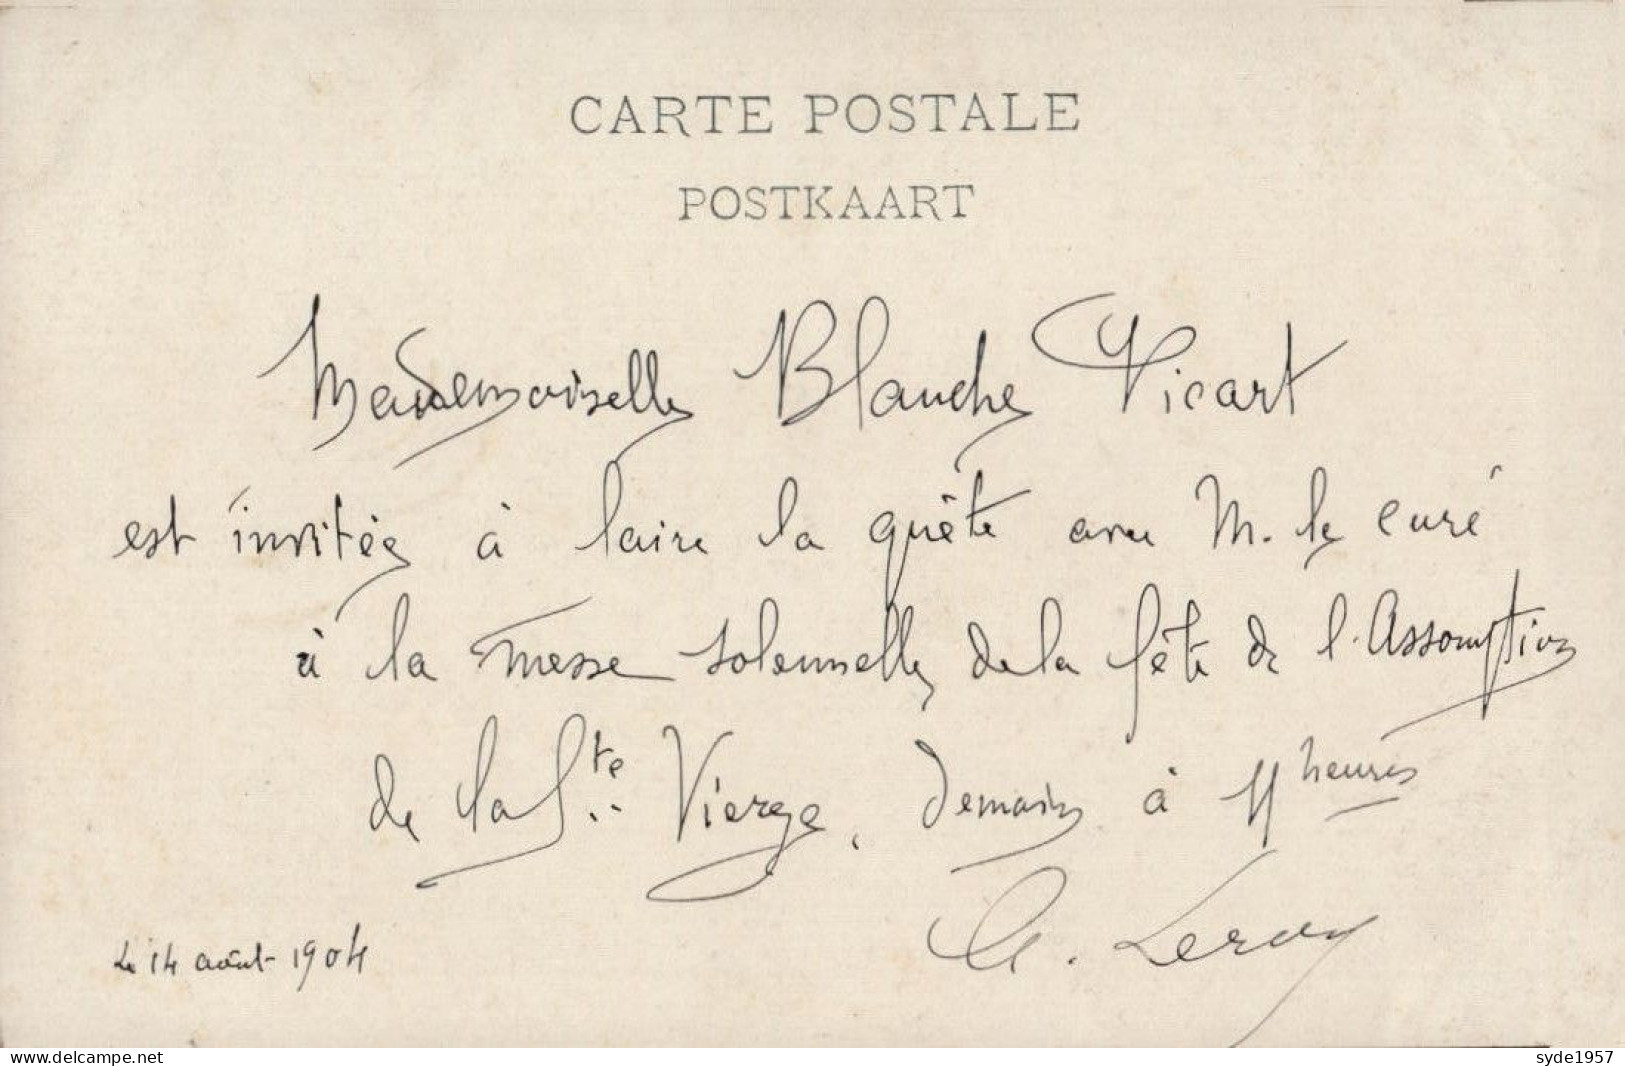 CARTE POSTALE
POSTKAART
Mademoiselle Blanche Vicart
est invitée à faire la quête avec M. le curé
à la messe solennelle de la fête de l'Assomption
de la Ste Vierge, demain à 11 heures
Leroy
Le 14 août 1904
delcampe.net
syde1957